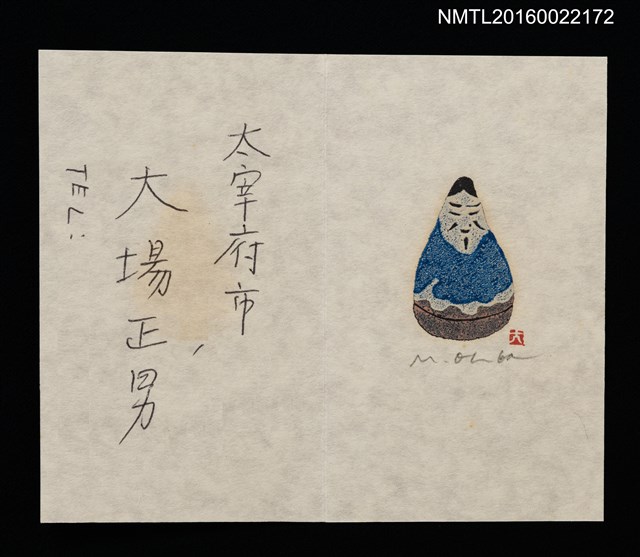 NMTL20160022172
太宰府市、
大場正男
TEL:
M. Ohba
大